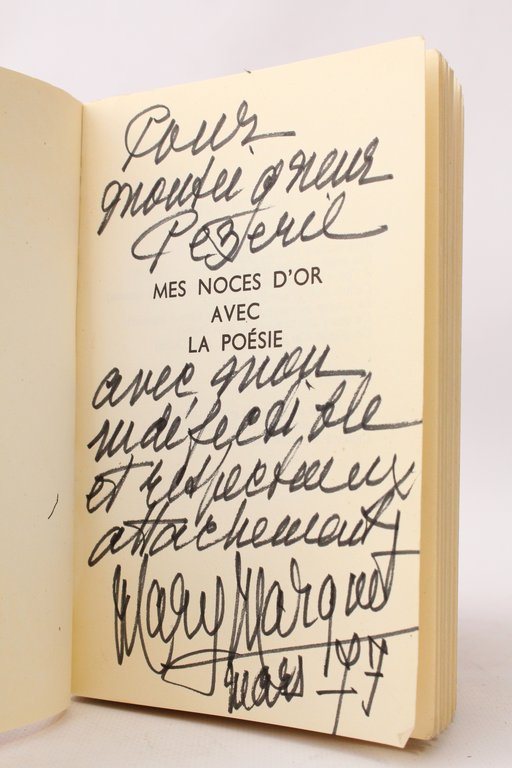 Pour
Monseigneur
Pézeril
MES NOCES D'OR
AVEC
LA POÉSIE
avec mon
indéfectible
et respectueux
attachement
Mary Marquet
mars 77